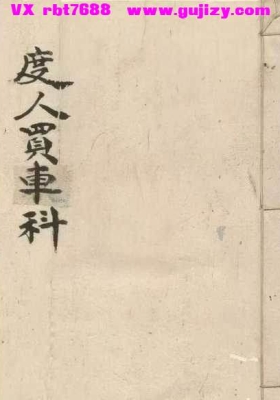 VX rbt7688 www.gujizy.com
度人買車科